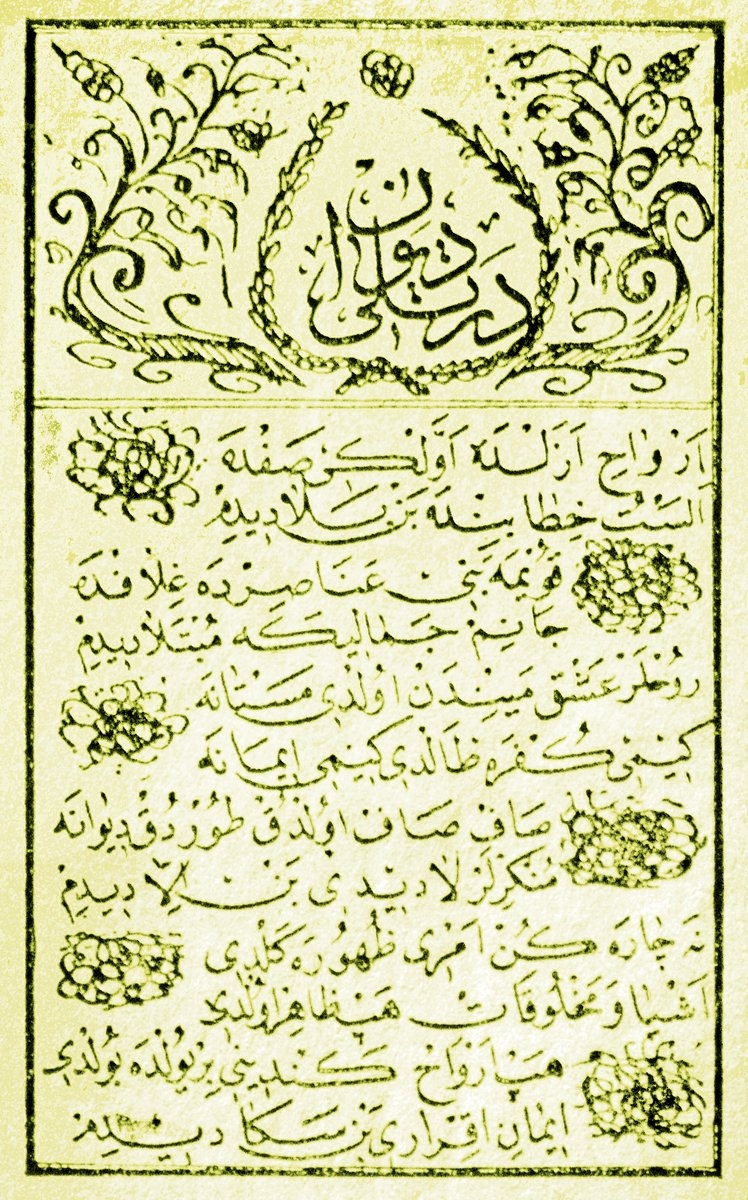 درتلی دیوانی
اَرْوَاحِ اَزَلْدَه اَوَّلْكِی صَفْدَه
اَلَسْتُ خِطَابِنْدَه بَنْ بَلَا دِیدِمْ
قَویْمَه بَنِی عَنَاصِرْدَه غِلَافْدَه
جَانِمْ جَمَالِیكَه مُبْتَلَا دِیدِمْ
رُوحْلَرْ عَشْقْ مَیِنْدَنْ اوُلْدِی مَسْتَانَه
كِیمِی كُفْرَه طَالْدِی كِیمِی اِیمَانَه
صَافْ صَافْ اوُلْدُقْ طُورْدُقْ دِیوَانَه
مُنْكِرْلَرْ لَا دِیدِی بَنْ اِلَّا دِیدِمْ
نَه چَارَه كُنْ اَمْرِی ظُهُورَه كَلْدِی
اَشْیَا وَ مَخْلُوقَاتْ هَبْ ظَاهِرْ اوُلْدِی
هَبْ اَرْوَاحْ كَنْدِینِی بِرْ یُولْدَه بُولْدِی
اِیمَانِ اِقْرَارِی بَنْ سَكَا دِیدِمْ